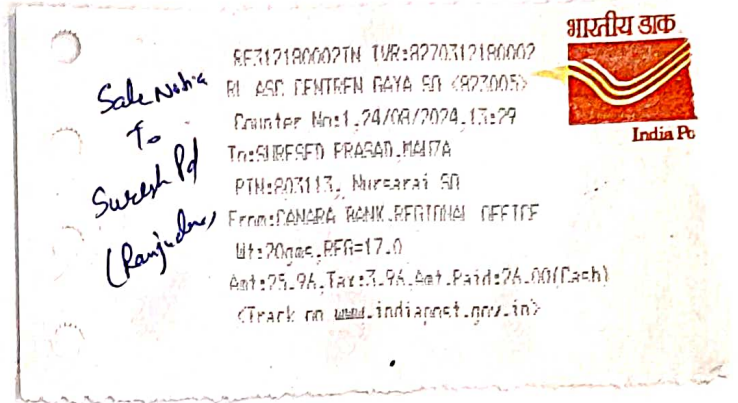 भारतीय डाक
India Po
Sale Notice
To
Suresh Pd
RF312180002IN IVR:8270312180002
RL ASC CENTREN GAYA SO <823005>
Counter No:1,24/08/2024,13:29
To:SURESED PRASAD,MAUZA
PIN:803113, Nursarai SO
From:CANARA BANK,REGIONAL OFFICE
Wt:20gms,REG=17.0
Amt:25.96,Tax:3.96,Amt.Paid:26.00(Cash)
<Track on www.indiapost.gov.in>